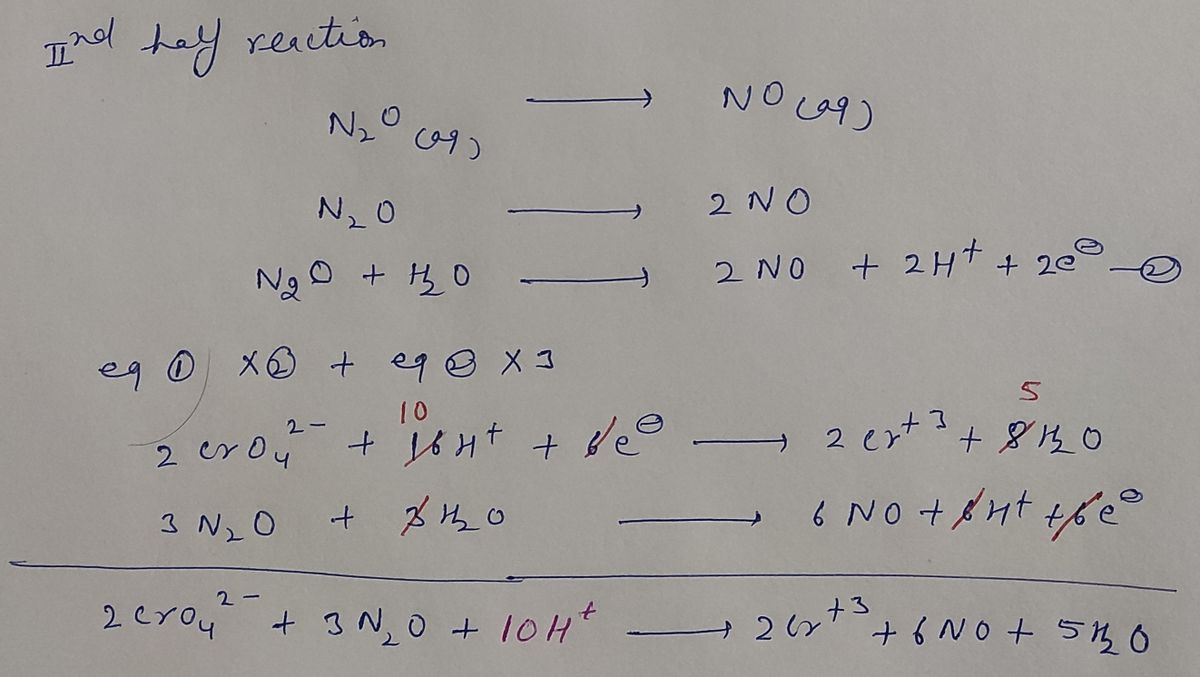 IInd half reaction
N₂O (aq) ⟶ NO (aq)
N₂O ⟶ 2 NO
N₂O + H₂O ⟶ 2 NO + 2H⁺ + 2e⊖ —②
eq ① × ② + eq ② × 3
10 5
2 crO₄²⁻ + 16H⁺ + 6e⊖ ⟶ 2 cr⁺³ + 8H₂O
3 N₂O + 3H₂O ⟶ 6 NO + 6H⁺ + 6e⊖
2 crO₄²⁻ + 3 N₂O + 10H⁺ ⟶ 2 Cr⁺³ + 6 NO + 5H₂O